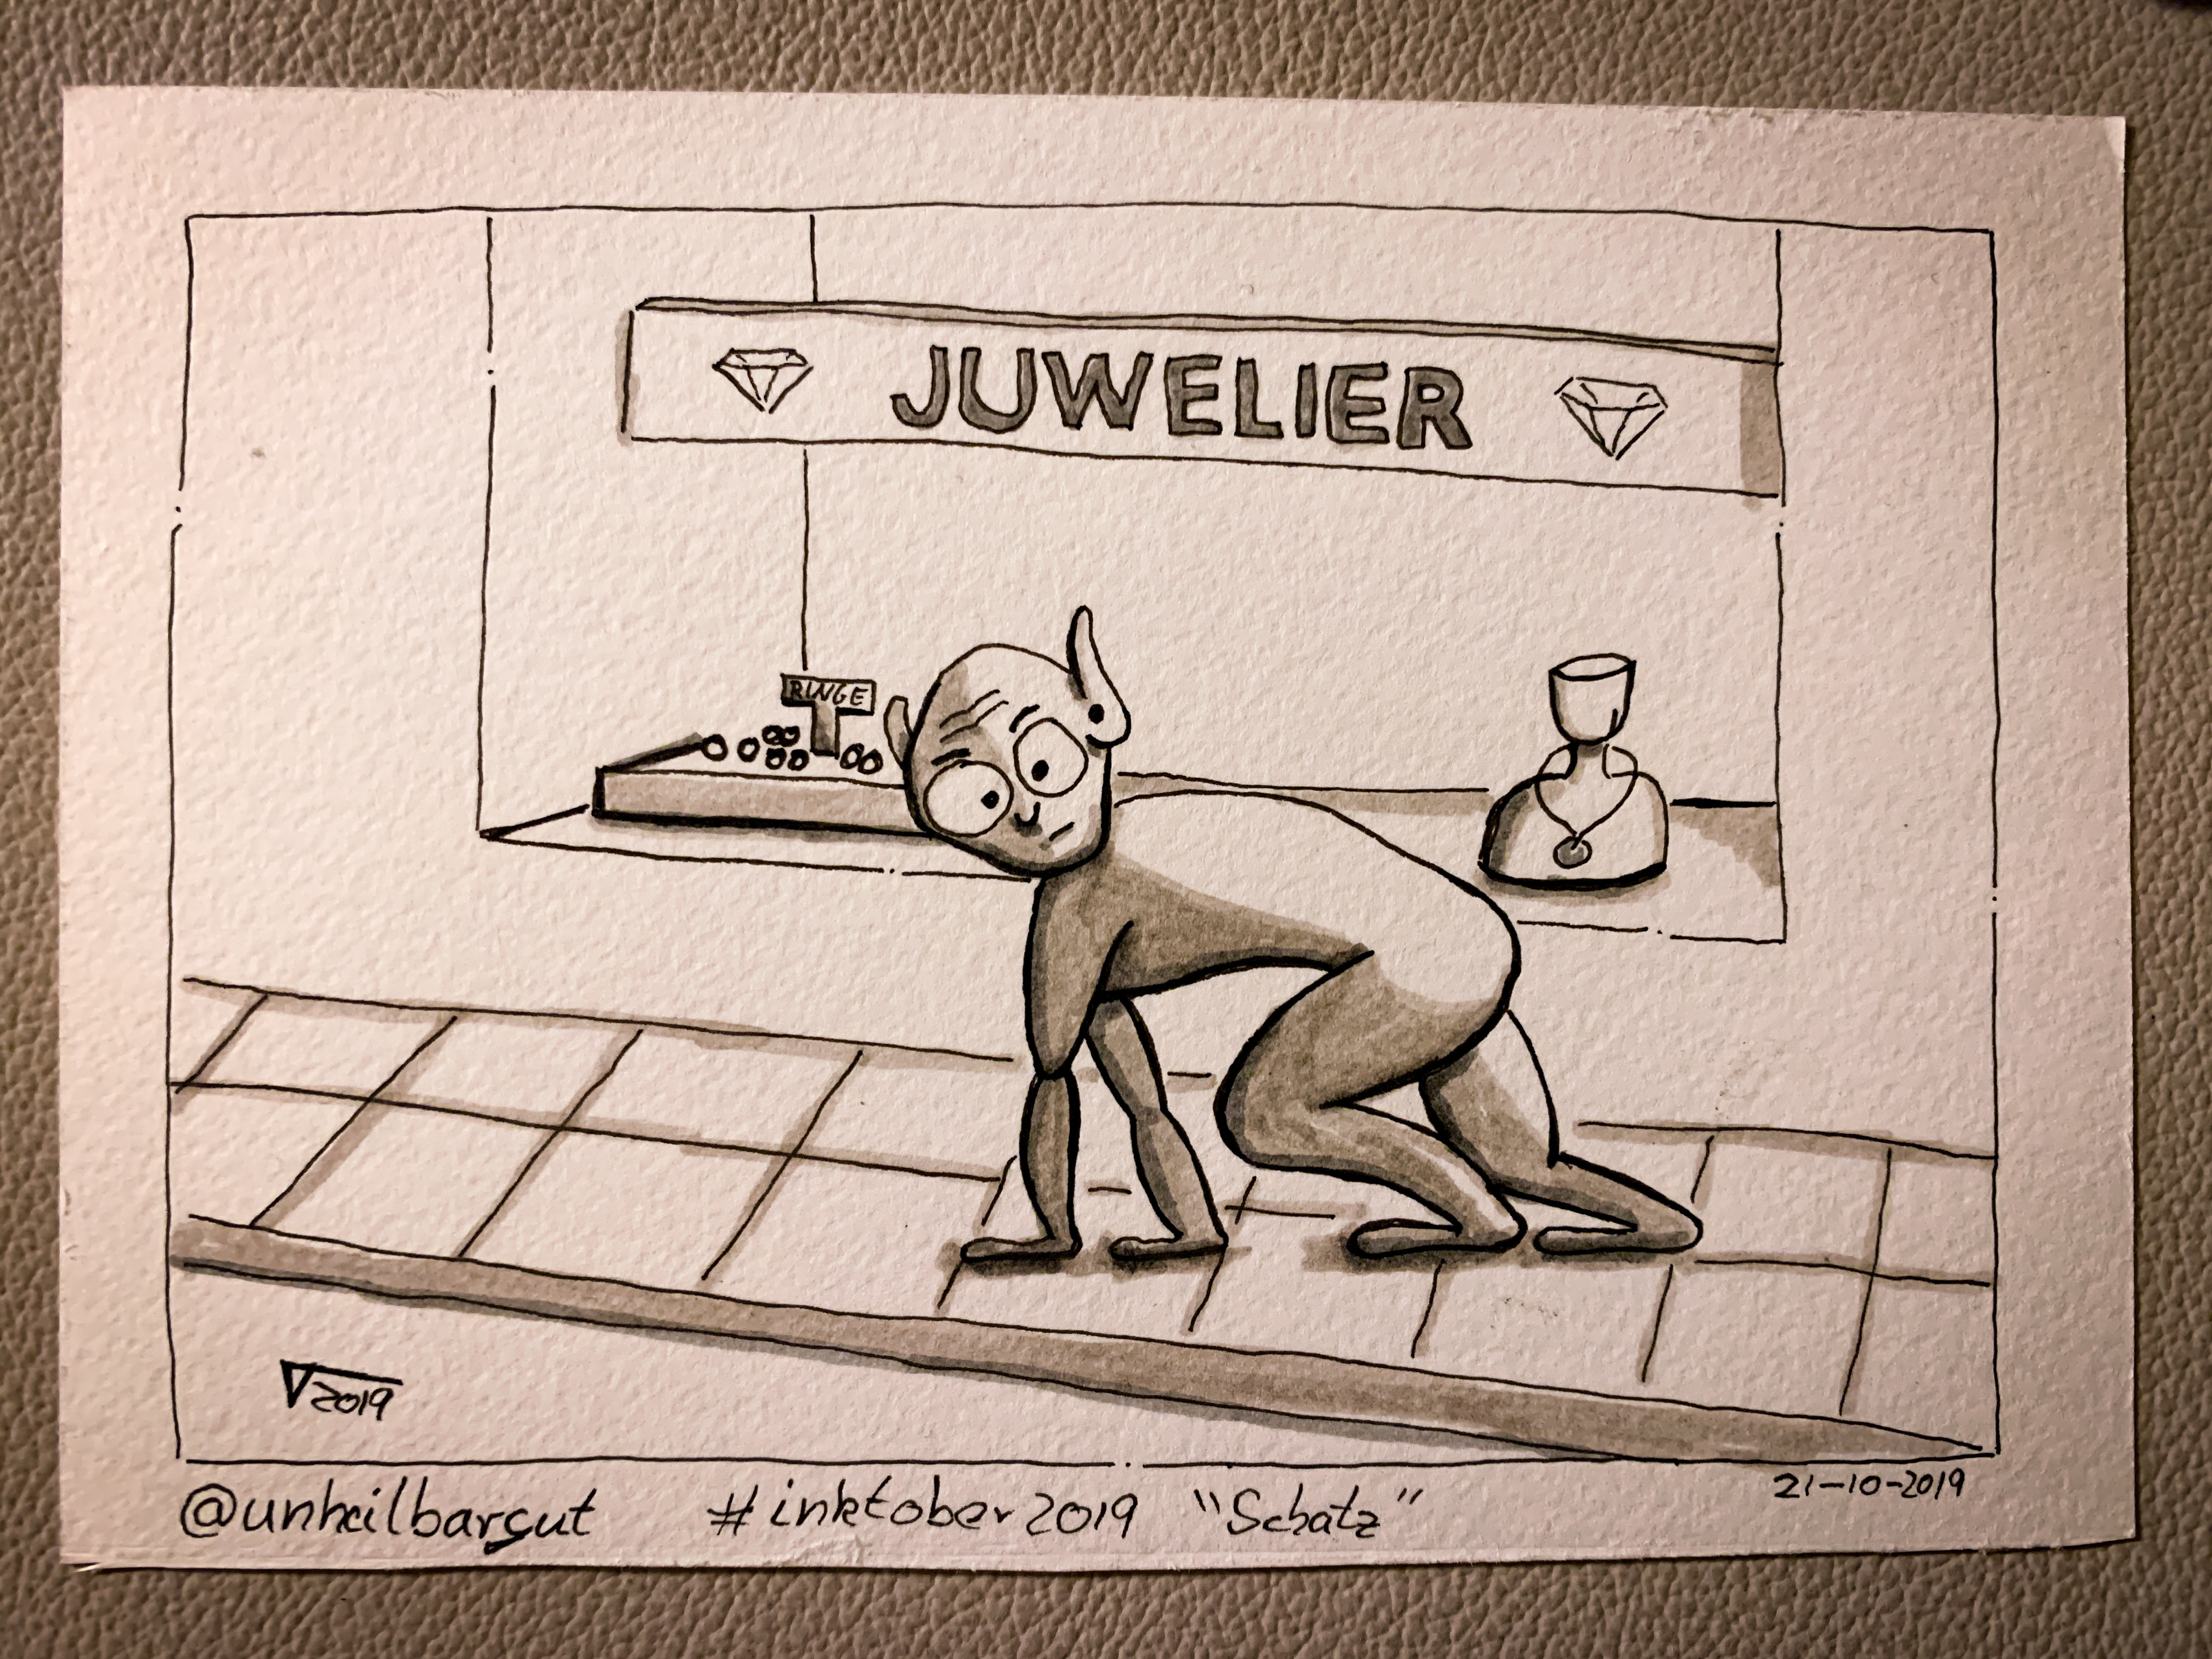 JUWELIER
RINGE
2019
@unheilbargut #inktober2019 "Schatz"
21-10-2019